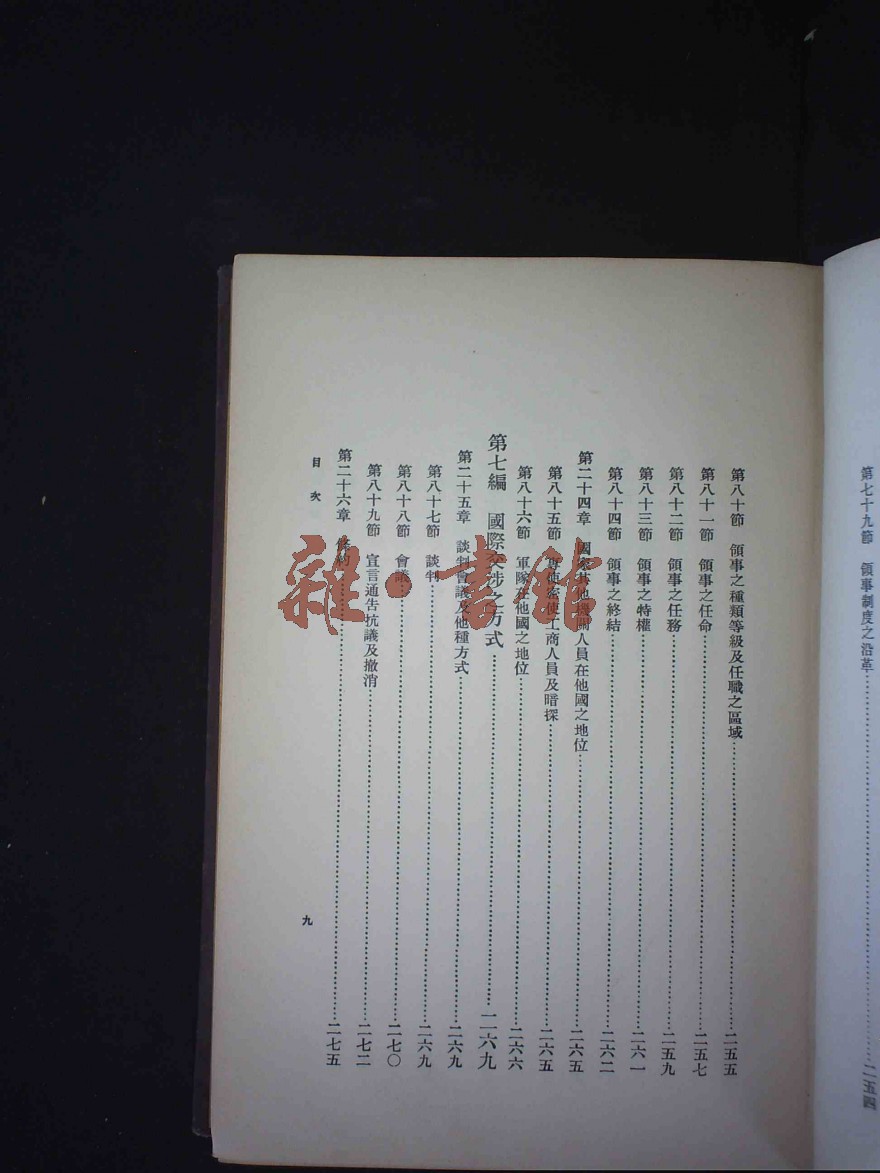 第七十九節　領事制度之沿革……二五四
第八十節　領事之種類等級及任職之區域……二五五
第八十一節　領事之任命……二五七
第八十二節　領事之任務……二五九
第八十三節　領事之特權……二六一
第八十四節　領事之終結……二六二
第二十四章　國家其他機關人員在他國之地位……二六五
第八十五節　專使密使工商人員及暗探……二六五
第八十六節　軍隊在他國之地位……二六六
第七編　國際交涉之方式……二六九
第二十五章　談判會議及他種方式……二六九
第八十七節　談判……二六九
第八十八節　會議……二七〇
第八十九節　宣言通告抗議及撤消……二七二
第二十六章　條約……二七五
目次
九
雜·書館